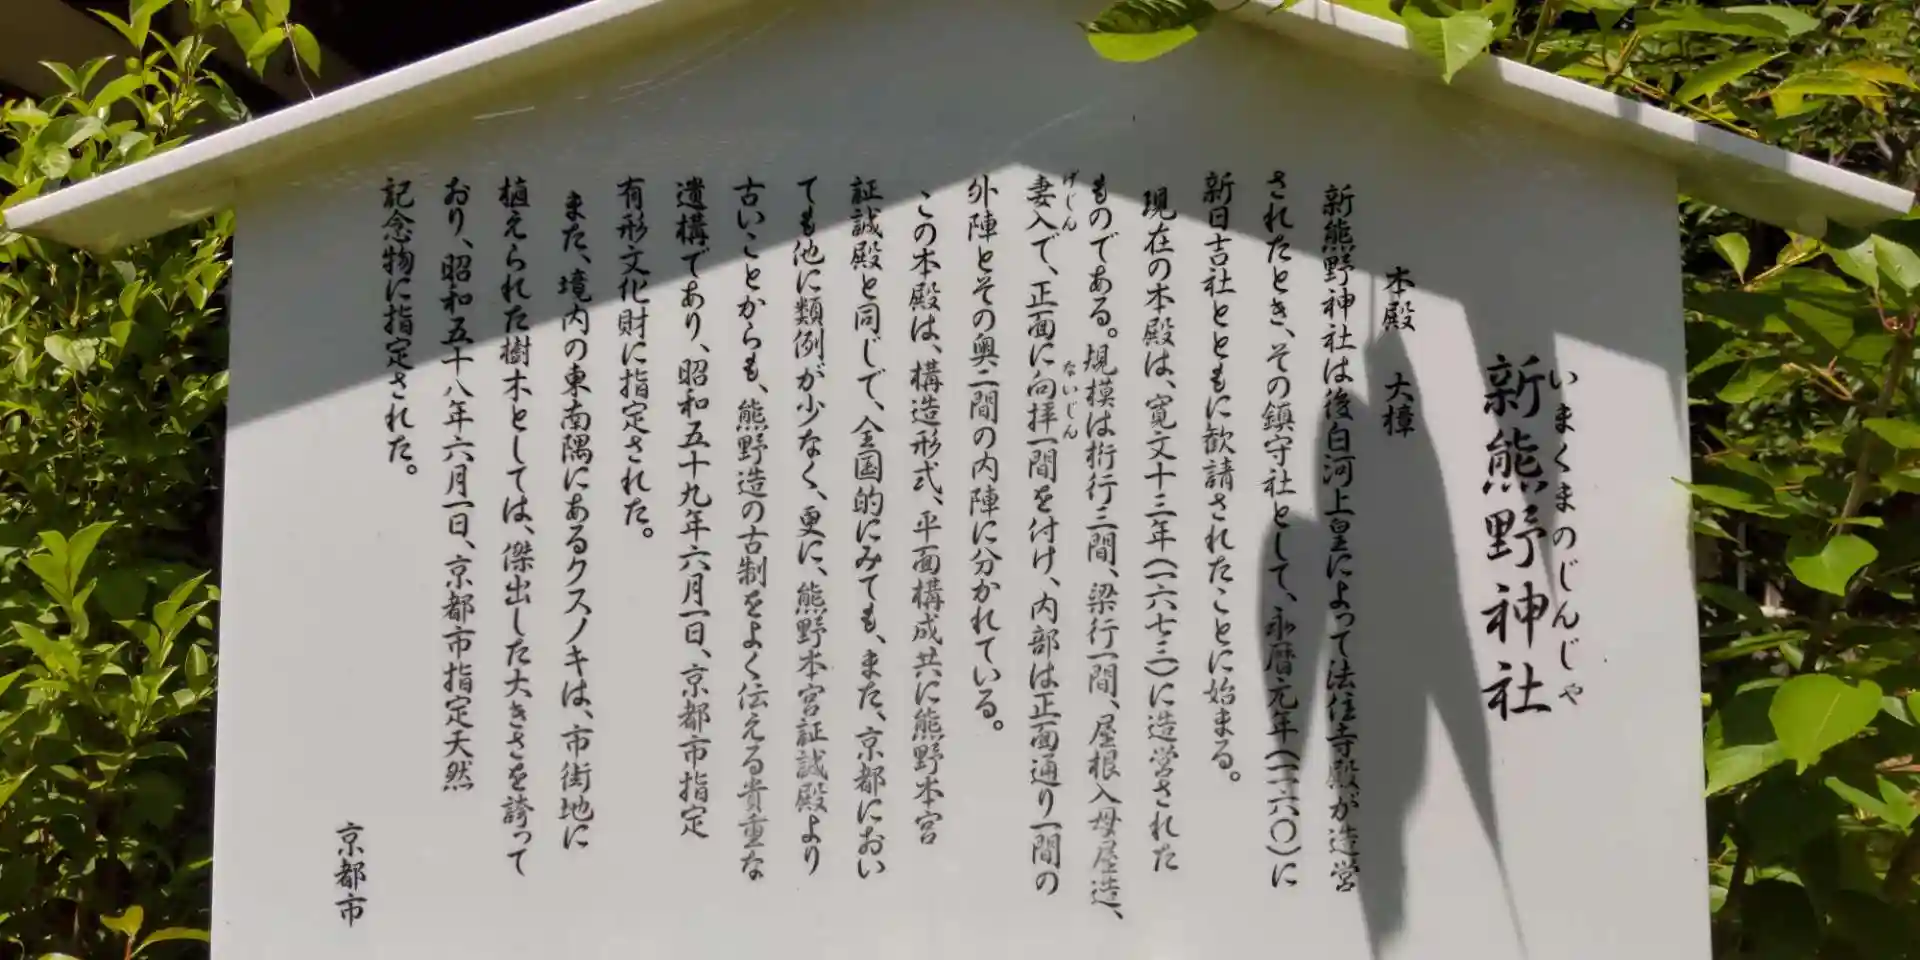 いまくまのじんじゃ
新熊野神社
本殿 大樟
新熊野神社は後白河上皇によって法住寺殿が造営
されたとき、その鎮守社として、永暦元年(一一六〇)に
新日吉社とともに歓請されたことに始まる。
現在の本殿は、寛文十三年(一六七三)に造営された
ものである。規模は桁行三間、梁行一間、屋根入母屋造、
妻入で、正面に向拝一間を付け、内部は正面通り一間の
げじん ないじん
外陣とその奥二間の内陣に分かれている。
この本殿は、構造形式、平面構成共に熊野本宮
証誠殿と同じで、全国的にみても、また、京都におい
ても他に類例が少なく、更に、熊野本宮証誠殿より
古いことからも、熊野造の古制をよく伝える貴重な
遺構であり、昭和五十九年六月一日、京都市指定
有形文化財に指定された。
また、境内の東南隅にあるクスノキは、市街地に
植えられた樹木としては、傑出した大きさを誇って
おり、昭和五十八年六月一日、京都市指定天然
記念物に指定された。
京都市